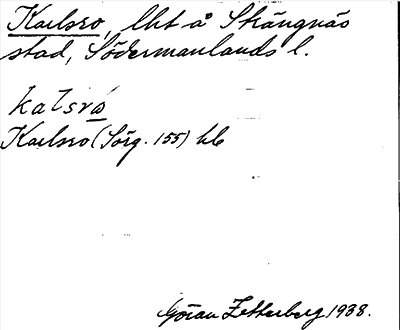 Karlsro, lht å Strängnäs
stad, Södermanlands l.
kalsrω
Karlsro (Sörg. 155) hb
Göran Zetterberg 1938.